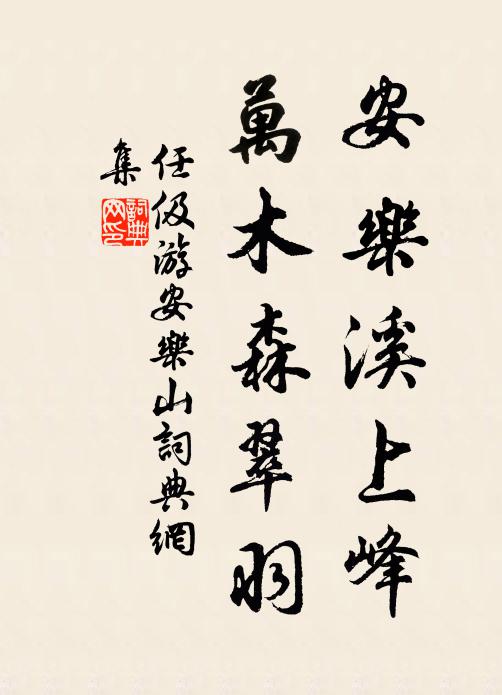 安樂溪上峰
萬木森翠羽
任伋游安樂山詞典網
集
詞典網印